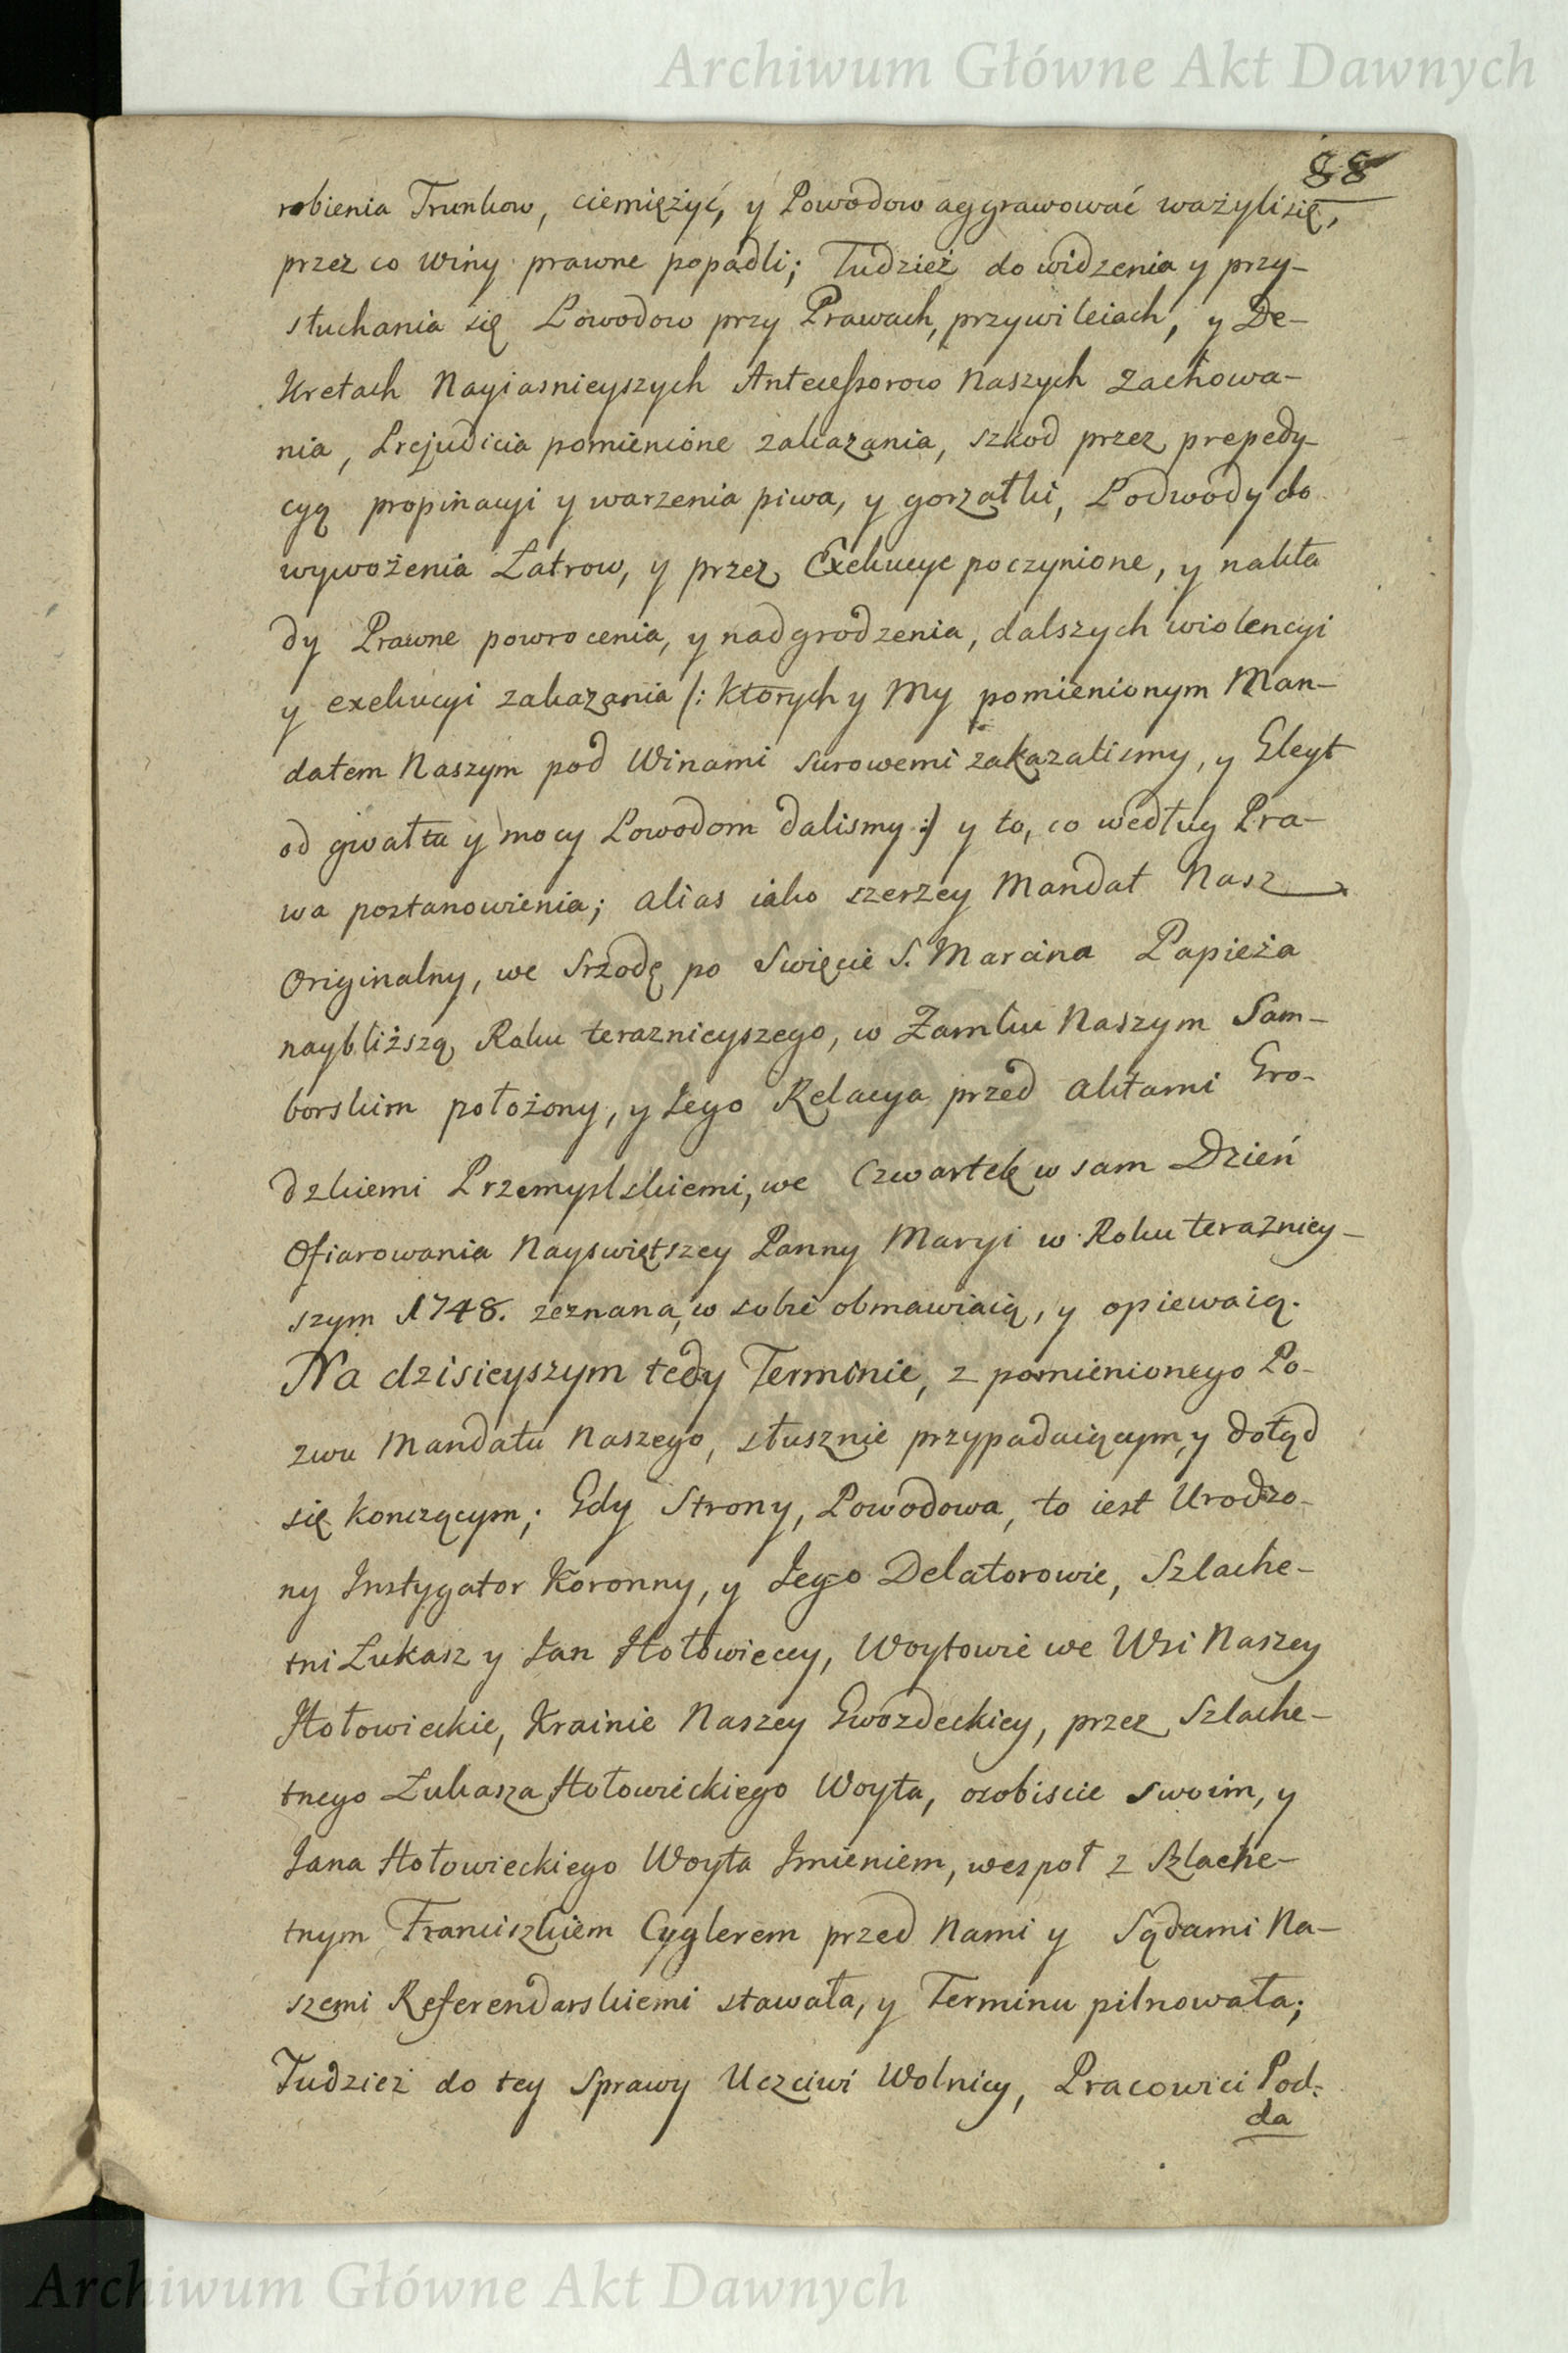 Archiwum Główne Akt Dawnych
88
robienia Trunkow, ciemiężyć, y Powodow aggrawować ważyli się,
przez co winy prawne popadli; Tudzież do widzenia y przy-
słuchania się Powodow przy Prawach, przywileiach, y De-
kretach Nayiasnieyszych Antecessorow Naszych zachowa-
nia, Prejudicia pomienione zakazania, szkod przez prepedy-
cyą propinacyi y warzenia piwa, y gorzałki, Podwody do
wywożenia Łatrow, y przez Exekucye poczynione, y nakła
dy Prawne powrocenia, y nadgrodzenia, dalszych wiolencyi
y exekucyi zakazania /: ktorych y My pomienionym Man-
datem Naszym pod Winami surowemi zakazalismy, y Gleyt
od gwałtu y mocy Powodom dalismy :/ y to, co według Pra-
wa postanowienia; alias iako szerzey Mandat Nasz
Originalny, we Srzodę po Swięcie S. Marcina Papieża
naybliższą Roku teraznieyszego, w Zamku Naszym Sam-
borskim położony, y Jego Relacya przed Aktami Gro-
dzkiemi Przemyslskiemi, we Czwartek w sam Dzień
Ofiarowania Nayswiętszey Panny Maryi w Roku teraźniey-
szym 1748. zeznana, w sobie obmawiaią, y opiewaią.
Na dzisieyszym tedy Terminie, z pomienionego Po-
zwu Mandatu Naszego, słusznie przypadaiącym, y dotąd
się konczącym; Gdy Strony, Powodowa, to iest Urodzo-
ny Instygator Koronny, y Jego Delatorowie, Szlache-
tni Łukasz y Jan Hołowieccy, Woytowie we Wsi Naszey
Hołowieckie, Krainie Naszey Gwozdeckiey, przez Szlache-
tnego Łukasza Hołowieckiego Woyta, osobiscie swoim, y
Jana Hołowieckiego Woyta Imieniem, wespoł z Szlache-
tnym Franciszkiem Cyglerem przed Nami y Sądami Na-
szemi Referendarskiemi stawała, y Terminu pilnowała;
Tudzież do tey Sprawy Uczciwi Wolnicy, Pracowici Pod-
da
Archiwum Główne Akt Dawnych